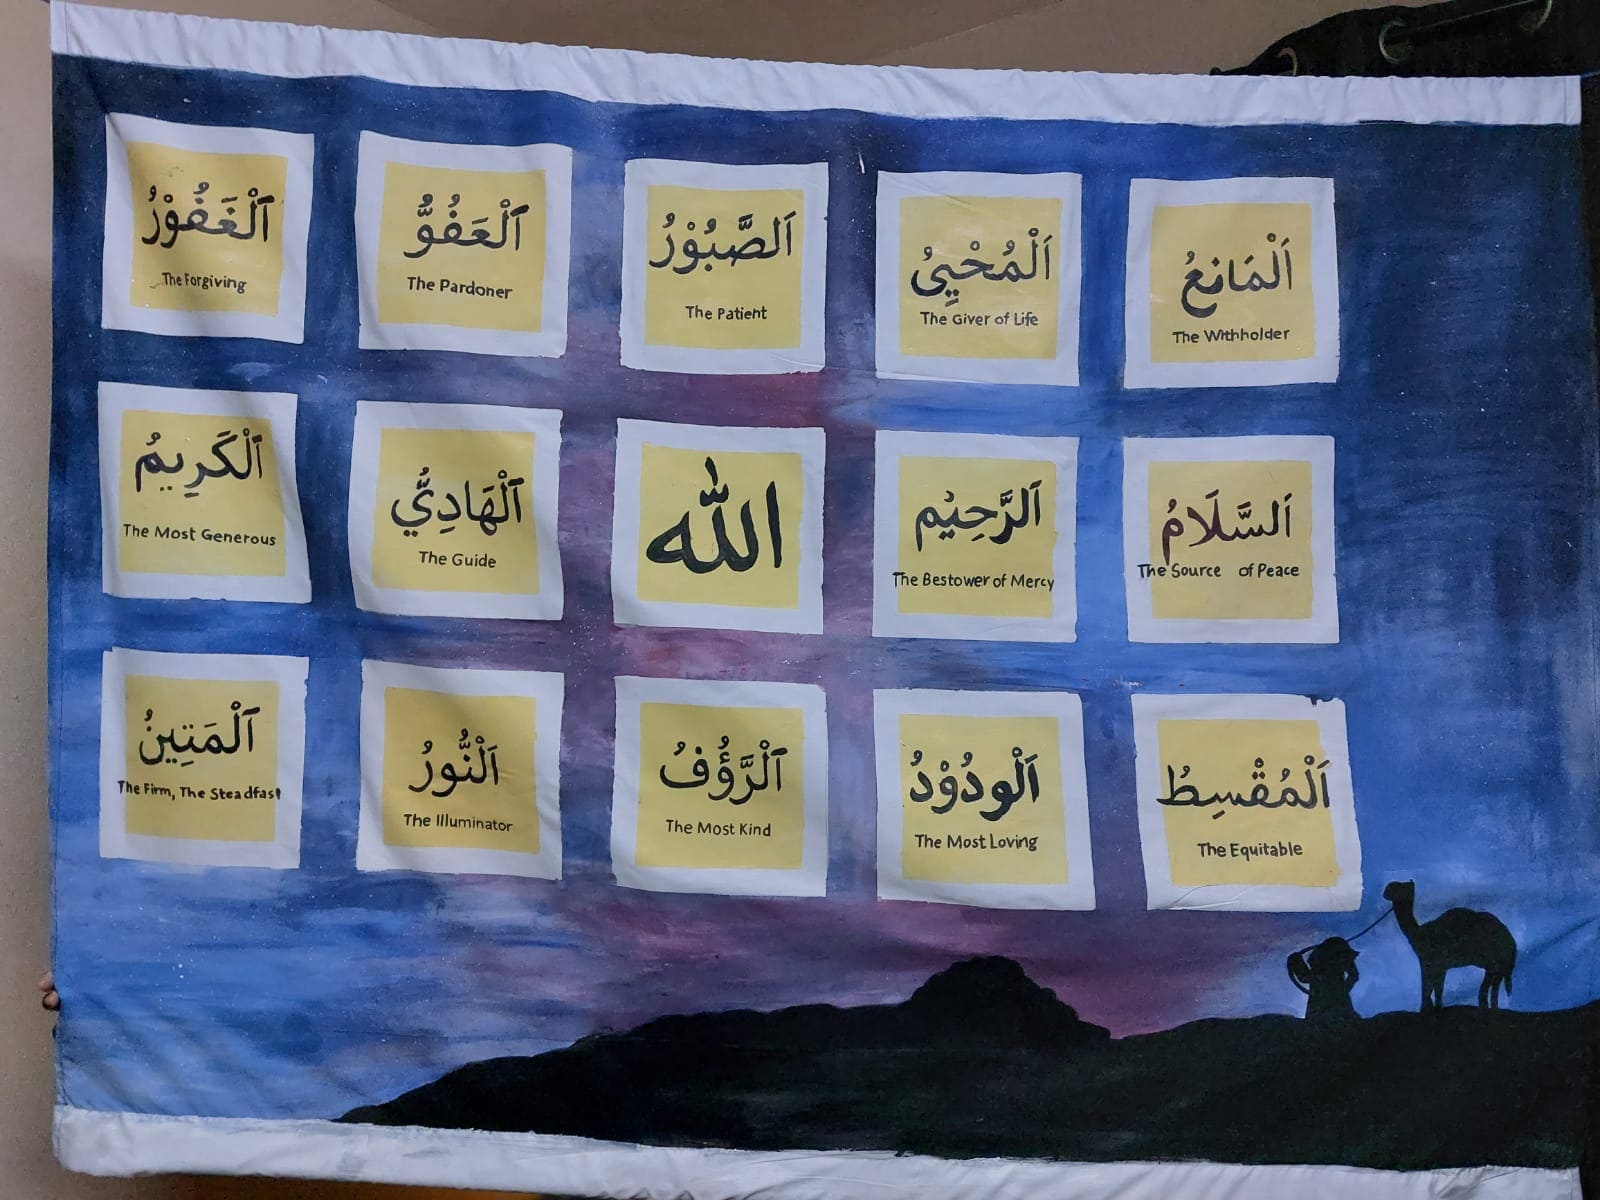 اَلْغَفُوْرُ
The Forgiving
اَلْعَفُوُّ
The Pardoner
اَلصَّبُوْرُ
The Patient
اَلْمُحْيِيُ
The Giver of Life
اَلْمَانِعُ
The Withholder
اَلْكَرِيمُ
The Most Generous
اَلْهَادِيُّ
The Guide
الله
اَلرَّحِيْم
The Bestower of Mercy
اَلسَّلَامُ
The Source of Peace
اَلْمَتِينُ
The Firm, The Steadfast
اَلْنُّورُ
The Illuminator
اَلْرَّؤُفُ
The Most Kind
اَلْودُوْدُ
The Most Loving
اَلْمُقْسِطُ
The Equitable